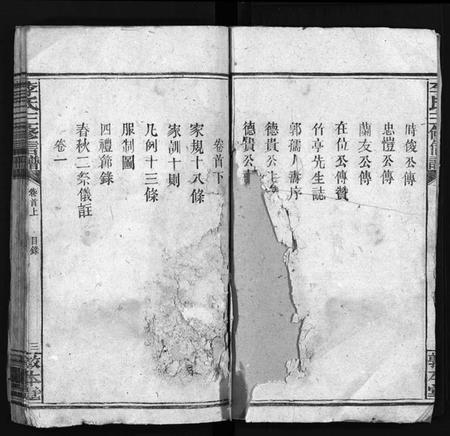 時俊公傳
忠愷公傳
蘭友公傳
在位公傳贊
竹亭先生誌
郭孺人壽序
德貴公
德貴公
卷首下
家規十八條
家訓十則
凡例十三條
服制圖
四禮篩錄
春秋二祭儀註
卷一
李氏三修信譜
卷首上
目錄
三
敦本堂